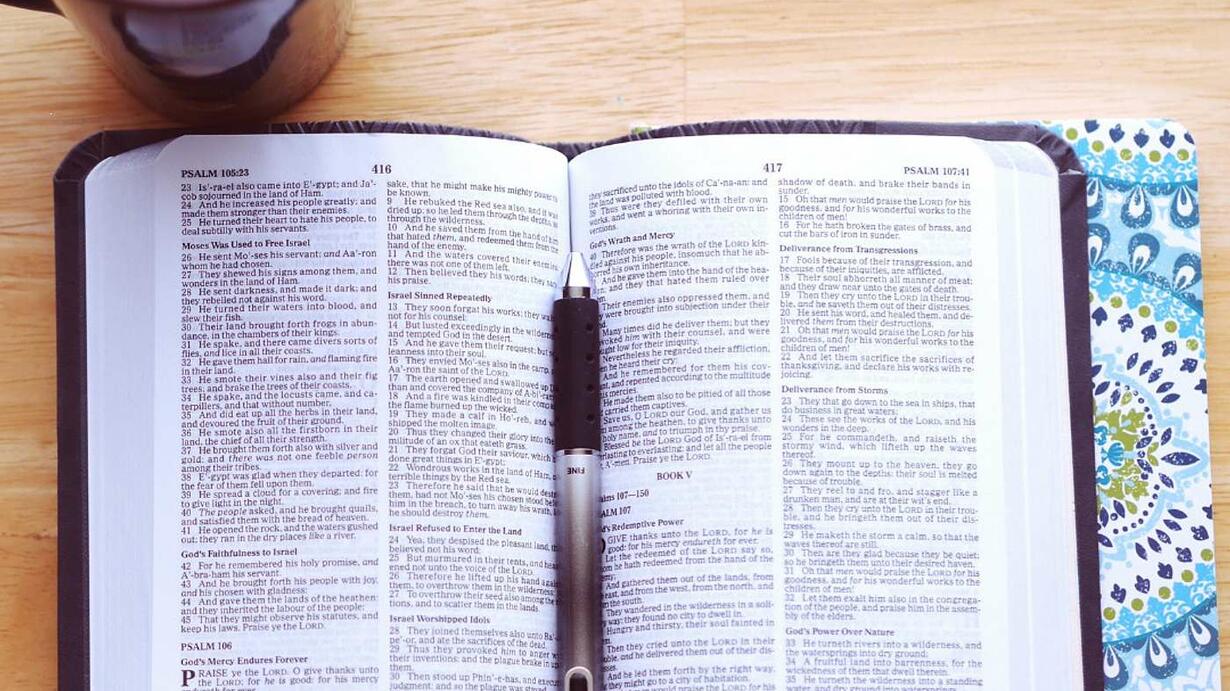 PSALM 105:23
416
23 Is'-ra-el also came into E'-gypt; and Ja'-
cob sojourned in the land of Ham.
24 And he increased his people greatly; and
made them stronger than their enemies.
25 He turned their heart to hate his people, to
deal subtilly with his servants.
Moses Was Used to Free Israel
26 He sent Mo'-ses his servant; and Aa'-ron
whom he had chosen.
27 They shewed his signs among them, and
wonders in the land of Ham.
28 He sent darkness, and made it dark; and
they rebelled not against his word.
29 He turned their waters into blood, and
slew their fish.
30 Their land brought forth frogs in abun-
dance, in the chambers of their kings.
31 He spake, and there came divers sorts of
flies, and lice in all their coasts.
32 He gave them hail for rain, and flaming fire
in their land.
33 He smote their vines also and their fig
trees, and brake the trees of their coasts.
34 He spake, and the locusts came, and ca-
terpillers, and that without number,
35 And did eat up all the herbs in their land,
and devoured the fruit of their ground.
36 He smote also all the firstborn in their
land, the chief of all their strength.
37 He brought them forth also with silver and
gold: and there was not one feeble person
among their tribes.
38 E'-gypt was glad when they departed: for
the fear of them fell upon them.
39 He spread a cloud for a covering; and fire
to give light in the night.
40 The people asked, and he brought quails,
and satisfied them with the bread of heaven.
41 He opened the rock, and the waters gushed
out; they ran in the dry places like a river.
God's Faithfulness to Israel
42 For he remembered his holy promise, and
A'-bra-ham his servant.
43 And he brought forth his people with joy,
and his chosen with gladness:
44 And gave them the lands of the heathen:
and they inherited the labour of the people;
45 That they might observe his statutes, and
keep his laws. Praise ye the LORD.
PSALM 106
God's Mercy Endures Forever
PRAISE ye the LORD. O give thanks unto
the LORD; for he is good: for his mercy
endureth for ever.
sake, that he might make his mighty power to
be known.
9 He rebuked the Red sea also, and it was
dried up: so he led them through the depths, as
through the wilderness.
10 And he saved them from the hand of him
that hated them, and redeemed them from the
hand of the enemy.
11 And the waters covered their enemies:
there was not one of them left.
12 Then believed they his words; they sang
his praise.
Israel Sinned Repeatedly
13 They soon forgat his works; they
not for his counsel:
14 But lusted exceedingly in the
and tempted God in the desert.
15 And he gave them their request; but
leanness into their soul.
16 They envied Mo'-ses also in the camp,
Aa'-ron the saint of the LORD.
17 The earth opened and swallowed up
than and covered the company of
18 And a fire was kindled in their
the flame burned up the wicked.
19 They made a calf in Ho'-reb, and
shipped the molten image.
20 Thus they changed their glory into the
militude of an ox that eateth grass.
21 They forgat God their saviour, which
done great things in E'-gypt;
22 Wondrous works in the land of Ham,
terrible things by the Red sea.
23 Therefore he said that he would
them, had not Mo'-ses his chosen stood
him in the breach, to turn away his wrath,
he should destroy them.
Israel Refused to Enter the Land
24 Yea, they despised the pleasant land,
believed not his word:
25 But murmured in their tents, and
ened not unto the voice of the LORD.
26 Therefore he lifted up his hand
them, to overthrow them in the wilderness:
27 To overthrow their seed also among the
tions, and to scatter them in the lands.
Israel Worshipped Idols
28 They joined themselves also unto
pe'-or, and ate the sacrifices of the dead.
29 Thus they provoked him to anger
their inventions: and the plague brake in
them.
30 Then stood up Phin'-e-has, and
judgment: and so the plague was
FINE
417
PSALM 107:41
they sacrificed unto the idols of Ca'-na-an: and
the land was polluted with blood.
39 Thus were they defiled with their own
works, and went a whoring with their own in-
ventions.
God's Wrath and Mercy
40 Therefore was the wrath of the LORD kin-
dled against his people, insomuch that he ab-
horred his own inheritance.
And he gave them into the hand of the hea-
and they that hated them ruled over
Their enemies also oppressed them, and
were brought into subjection under their
Many times did he deliver them; but they
him with their counsel, and were
low for their iniquity.
Nevertheless he regarded their affliction,
he heard their cry:
And he remembered for them his cov-
and repented according to the multitude
mercies.
He made them also to be pitied of all those
carried them captives.
Save us, O LORD our God, and gather us
among the heathen, to give thanks unto
holy name, and to triumph in thy praise.
Blessed be the LORD God of Is'-ra-el from
everlasting to everlasting: and let all the people
A'-men. Praise ye the LORD.
BOOK V
107—150
107
Redemptive Power
GIVE thanks unto the LORD, for he is
good: for his mercy endureth for ever.
Let the redeemed of the LORD say so,
he hath redeemed from the hand
And gathered them out of the lands, from
east, and from the west, from the north, and
the south.
They wandered in the wilderness in a soli-
way; they found no city to dwell in.
Hungry and thirsty, their soul fainted in
Then they cried unto the LORD in their
and he delivered them out of their dis-
And he led them forth by the right way,
they might go to a city of habitation.
men would praise the LORD for his
shadow of death, and brake their bands in
sunder.
15 Oh that men would praise the LORD for his
goodness, and for his wonderful works to the
children of men!
16 For he hath broken the gates of brass, and
cut the bars of iron in sunder.
Deliverance from Transgressions
17 Fools because of their transgression, and
because of their iniquities, are afflicted.
18 Their soul abhorreth all manner of meat;
and they draw near unto the gates of death.
19 Then they cry unto the LORD in their trou-
ble, and he saveth them out of their distresses.
20 He sent his word, and healed them, and de-
livered them from their destructions.
21 Oh that men would praise the LORD for his
goodness, and for his wonderful works to the
children of men!
22 And let them sacrifice the sacrifices of
thanksgiving, and declare his works with re-
joicing.
Deliverance from Storms
23 They that go down to the sea in ships, that
do business in great waters;
24 These see the works of the LORD, and his
wonders in the deep.
25 For he commandeth, and raiseth the
stormy wind, which lifteth up the waves
thereof.
26 They mount up to the heaven, they go
down again to the depths: their soul is melted
because of trouble.
27 They reel to and fro, and stagger like a
drunken man, and are at their wit's end.
28 Then they cry unto the LORD in their trou-
ble, and he bringeth them out of their dis-
tresses.
29 He maketh the storm a calm, so that the
waves thereof are still.
30 Then are they glad because they be quiet;
so he bringeth them unto their desired haven.
31 Oh that men would praise the LORD for his
goodness, and for his wonderful works to the
children of men!
32 Let them exalt him also in the congrega-
tion of the people, and praise him in the assem-
bly of the elders.
God's Power Over Nature
33 He turneth rivers into a wilderness, and
the watersprings into dry ground;
34 A fruitful land into barrenness, for the
wickedness of them that dwell therein.
35 He turneth the wilderness into a standing
water, and dry ground into watersprings.